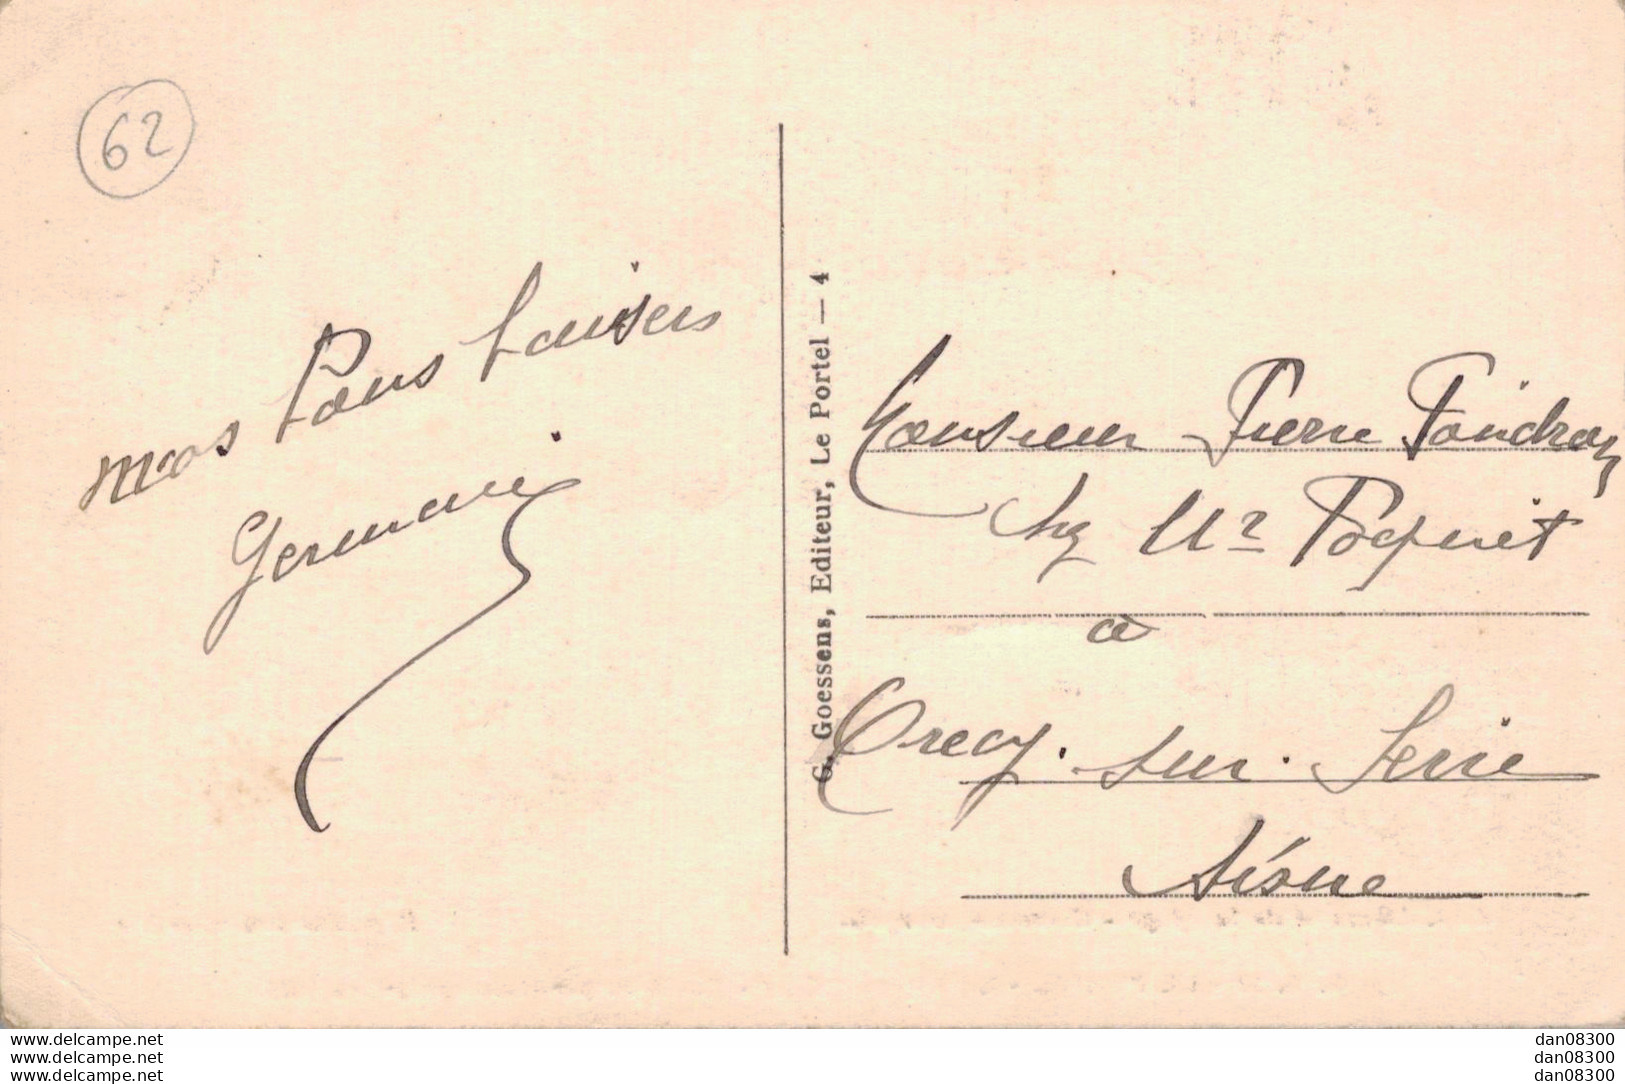 62
mos bons baisers
Germaine
G. Goessens, Editeur, Le Portel — 4
Monsieur Pierre
chz Mr Poquet
à
Crecy. sur. Serre
Aisne
www.delcampe.net
www.delcampe.net
www.delcampe.net
dan08300
dan08300
dan08300